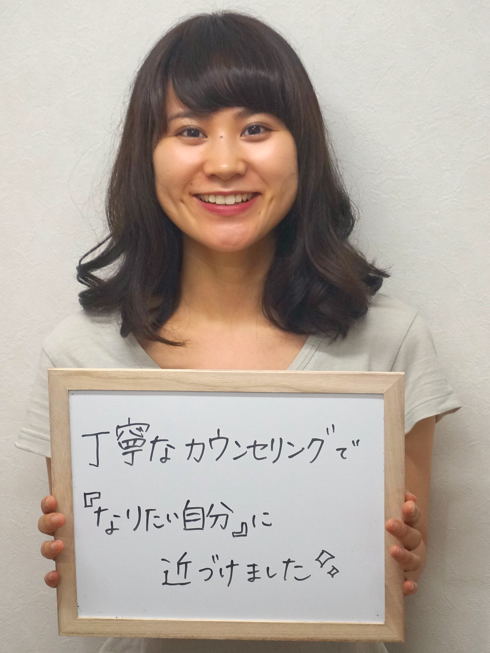 丁寧なカウンセリングで
『なりたい自分』に
近づけました